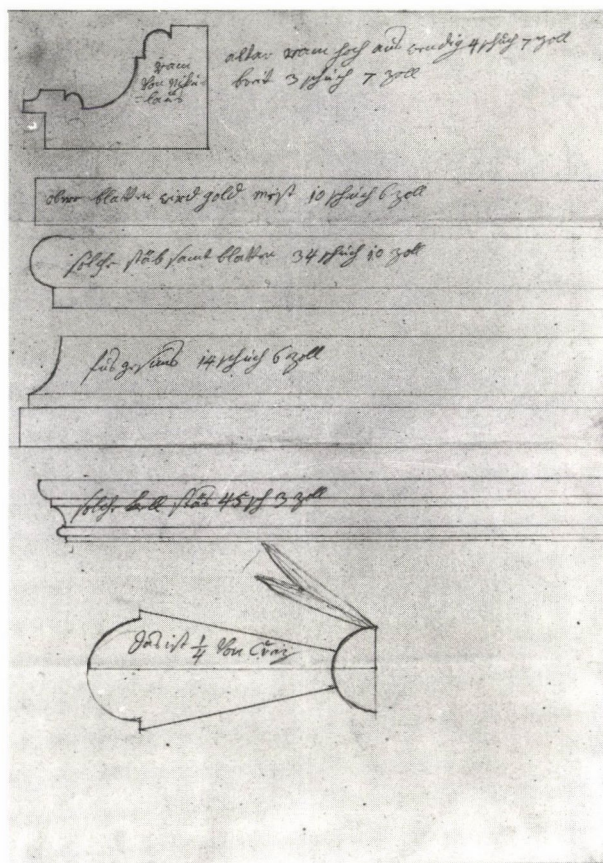 altar ram hoch aus wendig 4 schuch 7 zoll
breit 3 schuch 7 zoll
ram
von
blatten wird gold 10 schuch 6 zoll
solche stäb samt blatten 34 schuch 10 zoll
fus gesims 14 schuch 6 zoll
solche stäb 45 sch 3 zoll
das ist 1/4 von